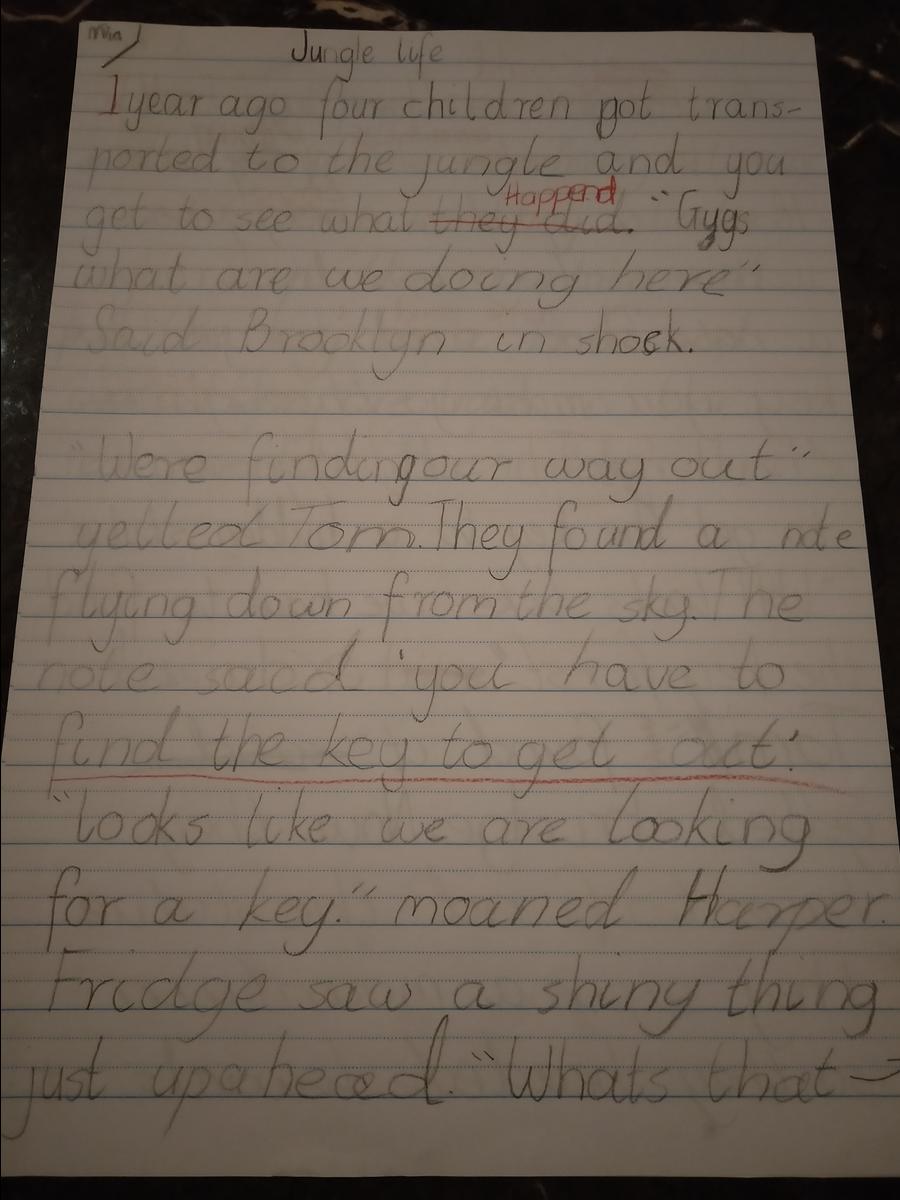 Mia
Jungle life
1 year ago four children got trans-
ported to the jungle and you
get to see what they did. Happend "Gygs
what are we doing here"
Said Brooklyn in shock.
"Were finding our way out"
yelled Tom. They found a note
flying down from the sky. The
note said 'you have to
find the key to get out.'
"looks like we are looking
for a key." moaned Harper.
Fridge saw a shiny thing
just up ahead. "Whats that